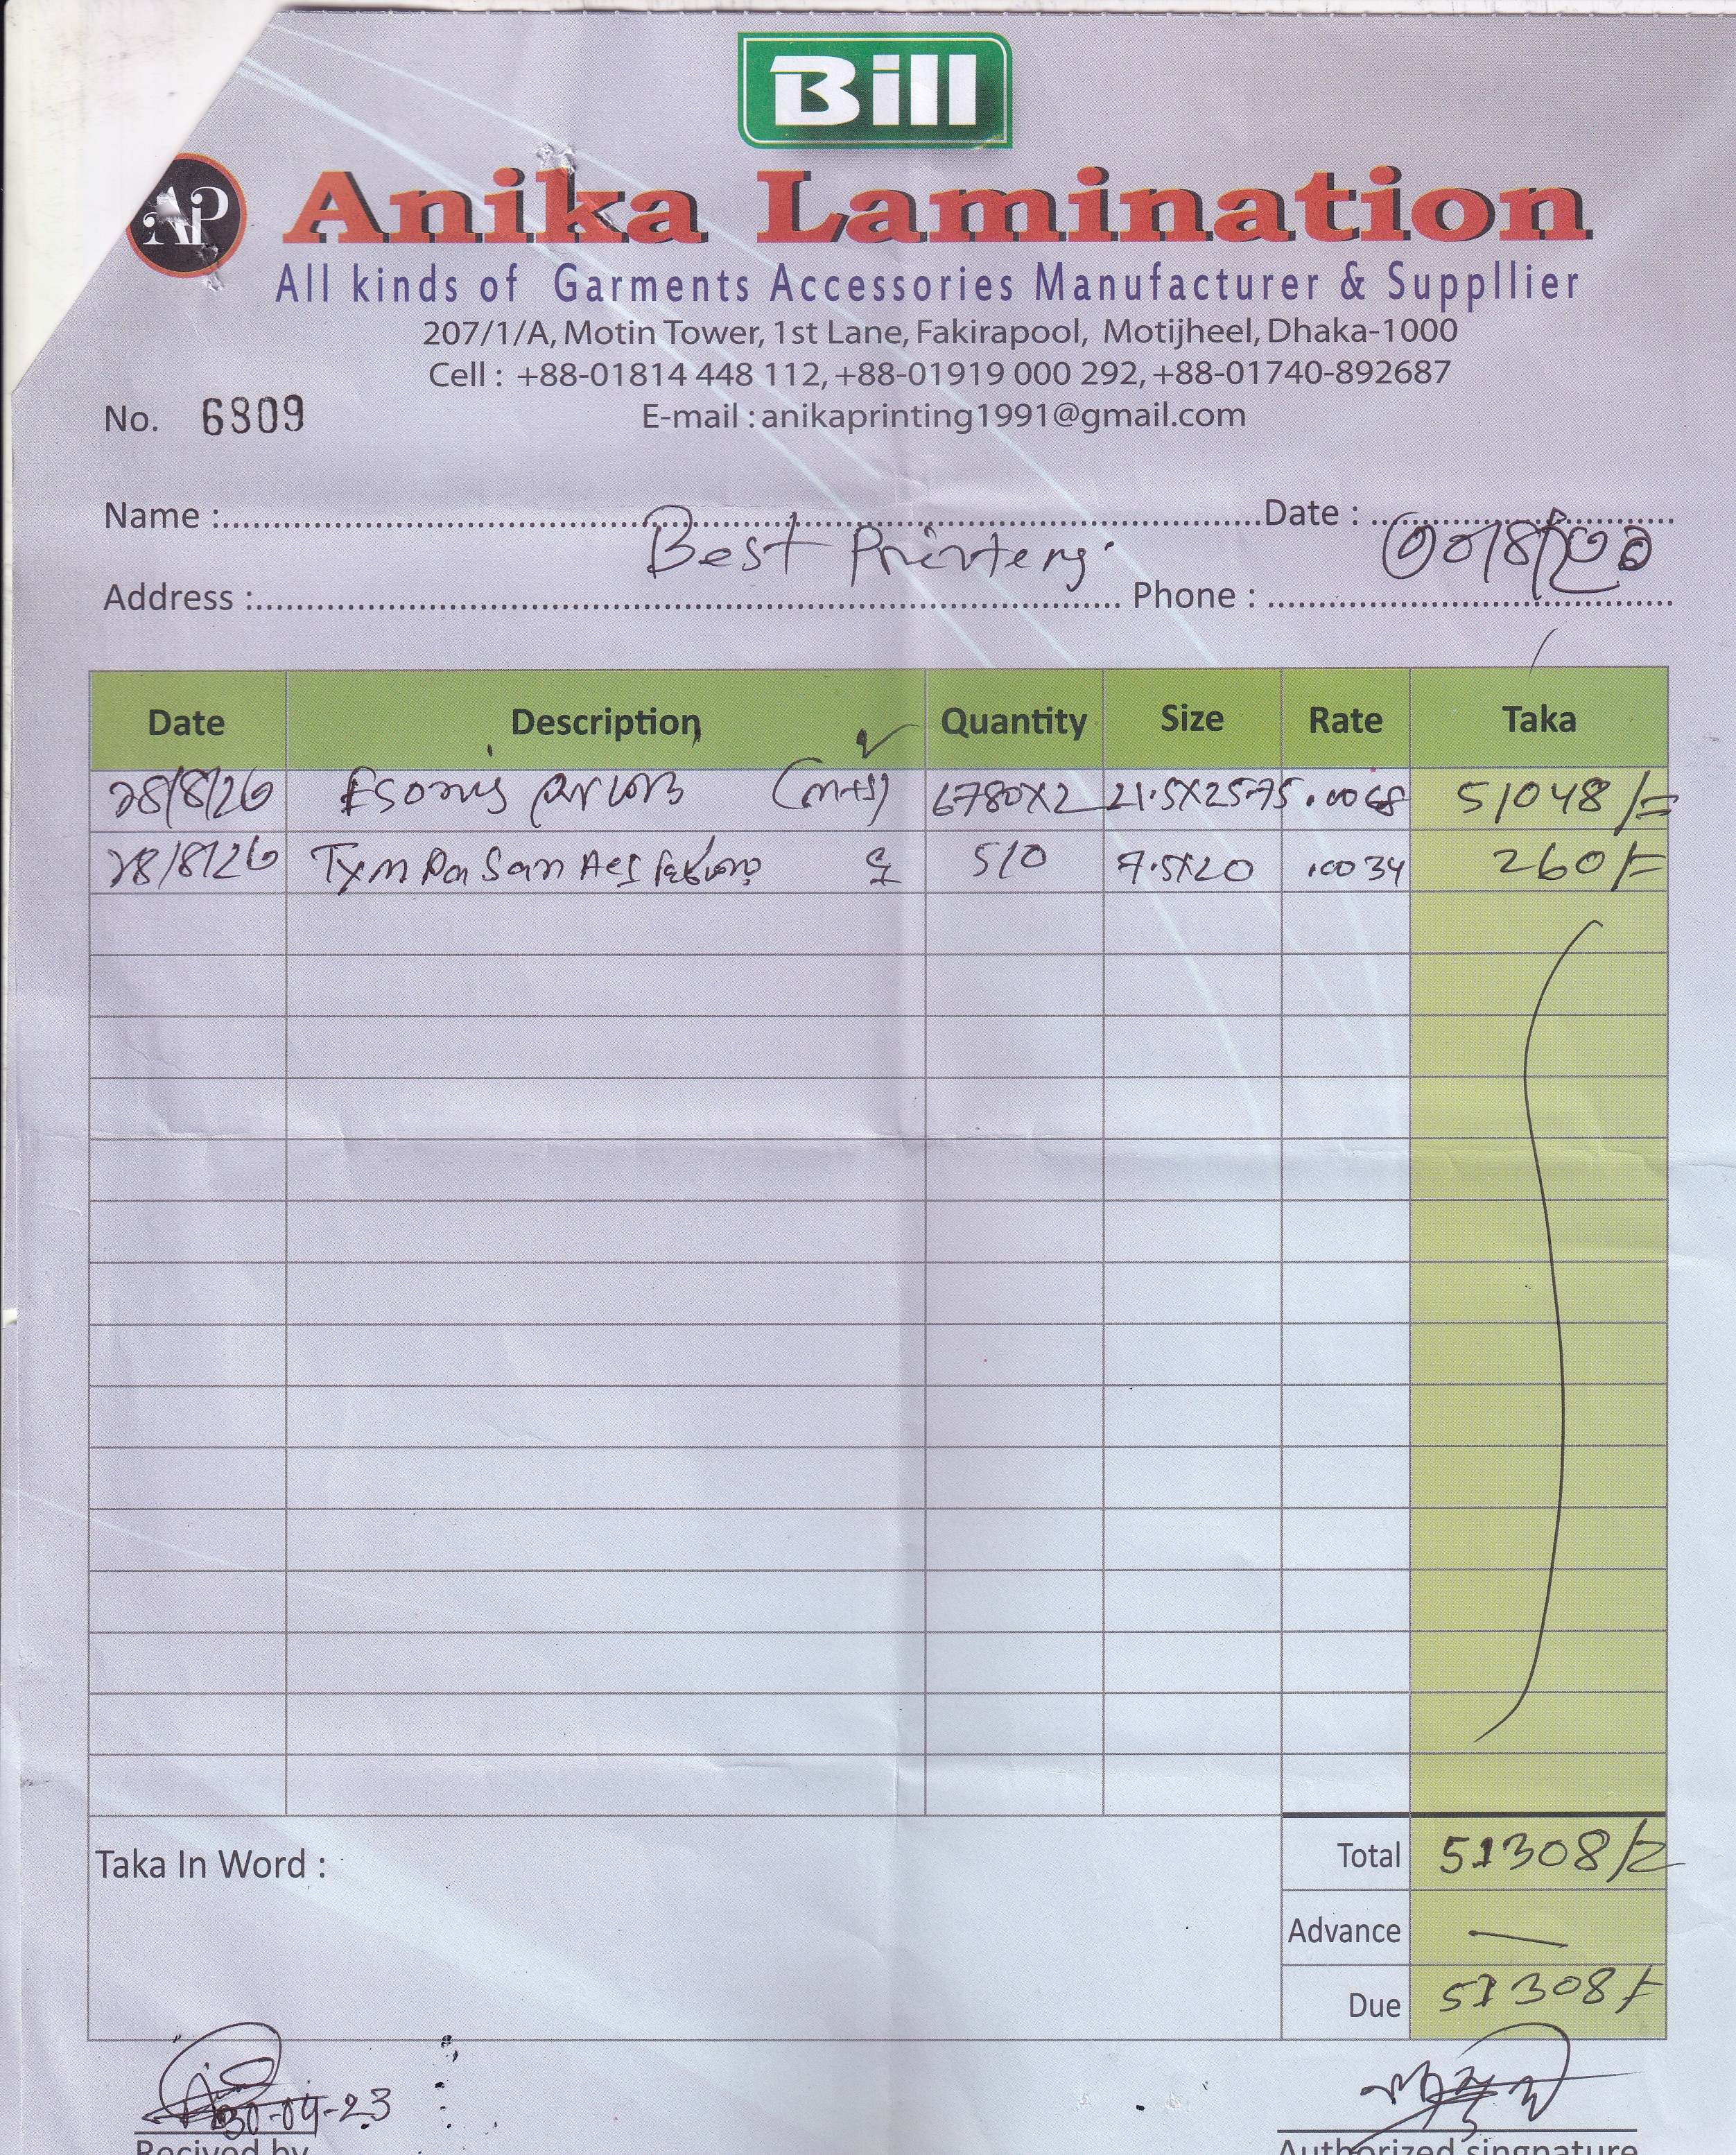 Bill
AP Anika Lamination
All kinds of Garments Accessories Manufacturer & Suppllier
207/1/A, Motin Tower, 1st Lane, Fakirapool, Motijheel, Dhaka-1000
Cell : +88-01814 448 112, +88-01919 000 292, +88-01740-892687
No. 6809 E-mail : anikaprinting1991@gmail.com
Name : Best Printers Date :
Address : Phone :
Date Description Quantity Size Rate Taka
6780X2 21.5X25.75 .0068 51048/=
510 7.5X20 .0034 260/=
Taka In Word :
Total 51308/=
Advance —
Due 51308/=
30-04-23
Recived by Authorized singnature